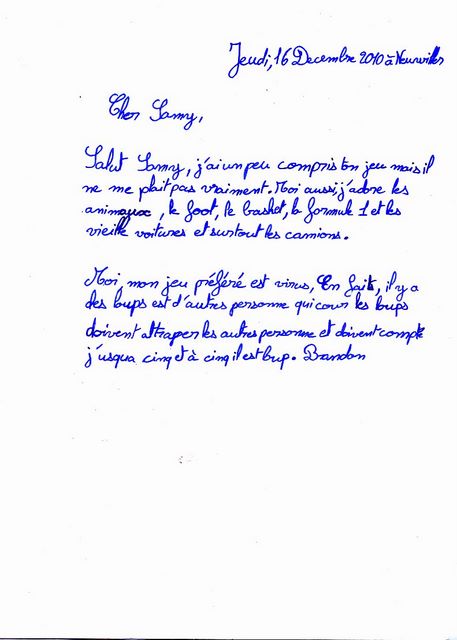 Jeudi, 16 Decembre 2010 à Neuwiller
Cher Samy,
Salut Samy, j'ai un peu compris ton jeu mais il
ne me plait pas vraiment. Moi aussi j'adore les
animaux, le foot, le basket, la formule 1 et les
vieille voitures et surtout les camions.
Moi, mon jeu préféré est virus, En fait, il y a
des loups est d'autres personne qui cour les loups
doivent attraper les autres personne et doivent compte
j'usqua cinq et à cinq il est loup. Brandon